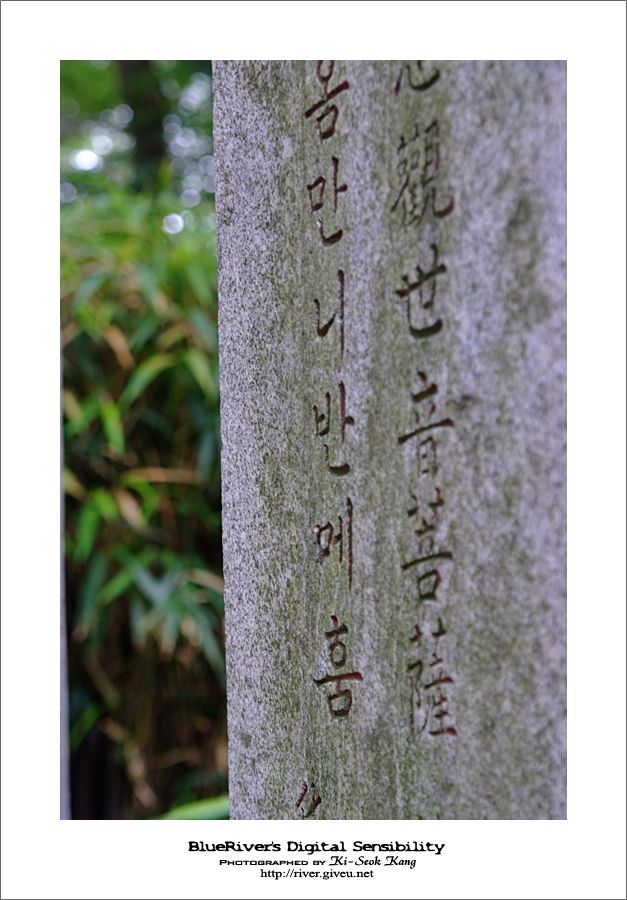 觀世音菩薩
옴만니반메훔
BlueRiver's Digital Sensibility
Photographed by Ki-Seok Kang
http://river.giveu.net